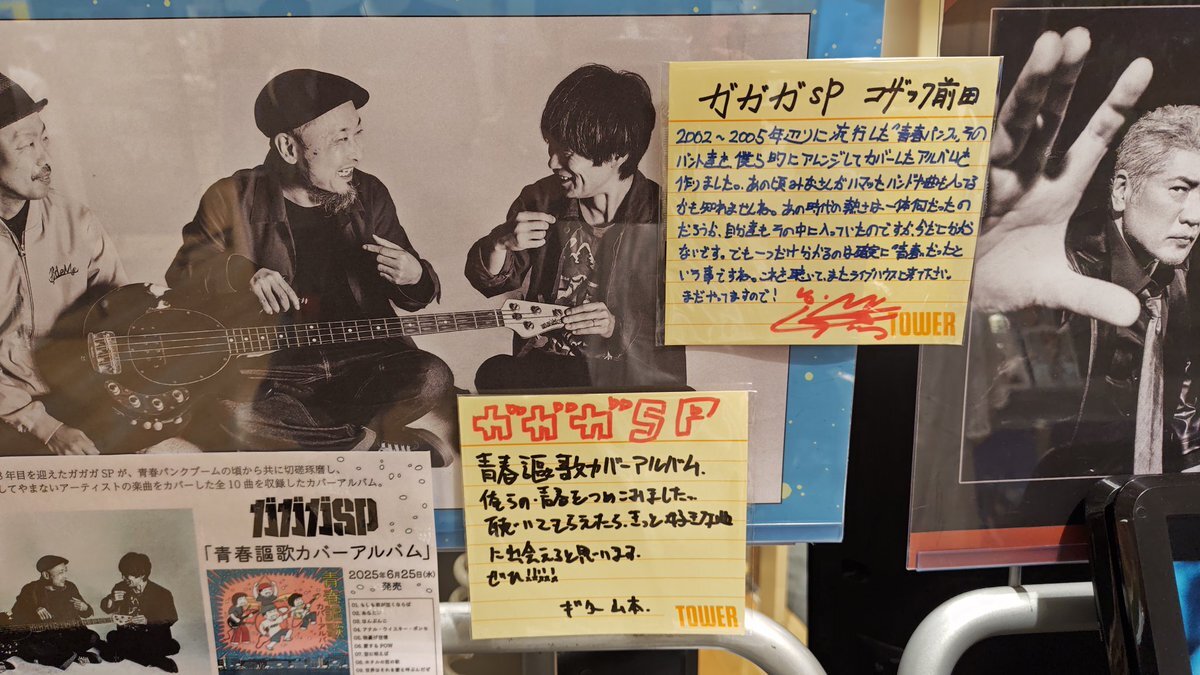 ガガガSP コザック前田
2002〜2005年辺りに流行した"青春パンク"、その
バンド達を僕ら的にアレンジしてカバーしたアルバムを
作りました。あの頃みなさんがハマったバンドや曲も入ってる
かも知れませんね。あの時代の熱さは一体何だったの
だろうか、自分達もその中に入っていたのですが、今だに分から
ないです。でも一つだけ分かるのは確実に"青春"だったと
いう事ですね。これを聴いて、またライブハウスに来て下さい。
まだやってますので!
TOWER
ガガガSP
青春謳歌カバーアルバム、
俺らの青春をつめこみました…
聴いてもらえたら、きっと好きな曲
に出会えると思います。
ぜひ!!!!!
ギター 山本.
TOWER
年目を迎えたガガガSPが、青春パンクブームの頃から共に切磋琢磨し、
してやまないアーティストの楽曲をカバーした全10曲を収録したカバーアルバム。
ガガガSP
「青春謳歌カバーアルバム」
2025年6月25日(水)
発売
01.もしも君が泣くならば
02.あなたに
03.さんぶんこ
04.アナル・ウイスキー・ポンセ
05.強級が住憎
06.愛するPOW
07.空に唄えば
08.ホタルの恋の歌
09.世界はそれを愛と呼ぶんだぜ